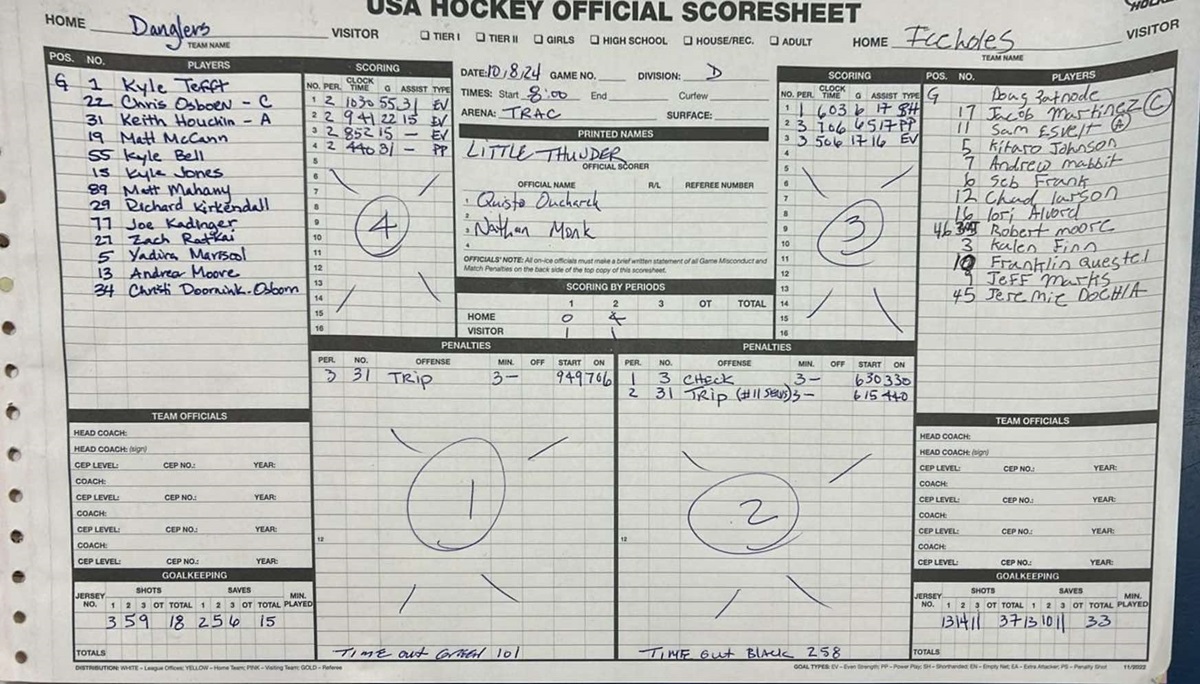 USA HOCKEY OFFICIAL SCORESHEET
HOME Danglers VISITOR
TEAM NAME
☐ TIER I ☐ TIER II ☐ GIRLS ☐ HIGH SCHOOL ☐ HOUSE/REC. ☐ ADULT
HOME Iceholes VISITOR
TEAM NAME
POS. NO. PLAYERS
G 1 Kyle Tefft
22 Chris Osborn - C
31 Keith Houchin - A
19 Matt McCann
55 Kyle Bell
15 Kyle Jones
89 Matt Mahany
29 Richard Kirkendall
77 Joe Kadinger
27 Zach Ratkai
5 Yadira Mariscol
13 Andrea Moore
34 Christi Doornink-Osborn
SCORING
NO. PER. CLOCK TIME G ASSIST TYPE
1 2 1030 55 31 EV
2 2 941 22 15 EV
3 2 852 15 - EV
4 2 440 31 - PP
5
6
7
8
9
10
11
12
13
14
15
16
4
DATE: 10/8/24 GAME NO. DIVISION: D
TIMES: Start 8:00 End Curfew
ARENA: TRAC SURFACE:
PRINTED NAMES
LITTLE THUNDER
OFFICIAL SCORER
OFFICIAL NAME R/L REFEREE NUMBER
1 Quisto
2
3 Nathan Monk
4
OFFICIALS' NOTE: All on-ice officials must make a brief written statement of all Game Misconduct and
Match Penalties on the back side of the top copy of this scoresheet.
SCORING BY PERIODS
1 2 3 OT TOTAL
HOME 0 4
VISITOR 1 1
SCORING
NO. PER. CLOCK TIME G ASSIST TYPE
1 1 603 6 17 SH
2 3 706 6 5 17 PP
3 3 506 17 16 EV
4
5
6
7
8
9
10
11
12
13
14
15
16
3
POS. NO. PLAYERS
G Doug
17 Jacob Martinez C
11 Sam Esvelt A
5 Kitaro Johnson
7 Andrew mabbit
6 Seb Frank
12 Chad larson
16 Tori Alvord
46 Robert moore
3 Kalen Finn
10 Franklin Questel
9 Jeff Marks
45 Jeremie
PENALTIES
PER. NO. OFFENSE MIN. OFF START ON
3 31 TRIP 3- 949 706
12
1
TIME OUT GREEN 101
PENALTIES
PER. NO. OFFENSE MIN. OFF START ON
1 3 CHECK 3- 630 330
2 31 TRIP (#11 SERVES) 3- 615 440
12
2
TIME OUT BLACK 258
TEAM OFFICIALS
HEAD COACH:
HEAD COACH: (sign)
CEP LEVEL: CEP NO.: YEAR:
COACH:
CEP LEVEL: CEP NO.: YEAR:
COACH:
CEP LEVEL: CEP NO.: YEAR:
COACH:
CEP LEVEL: CEP NO.: YEAR:
GOALKEEPING
JERSEY NO. SHOTS SAVES MIN. PLAYED
1 2 3 OT TOTAL 1 2 3 OT TOTAL
3 5 9 18 2 5 6 15
TOTALS
TEAM OFFICIALS
HEAD COACH:
HEAD COACH: (sign)
CEP LEVEL: CEP NO.: YEAR:
COACH:
CEP LEVEL: CEP NO.: YEAR:
COACH:
CEP LEVEL: CEP NO.: YEAR:
COACH:
CEP LEVEL: CEP NO.: YEAR:
GOALKEEPING
JERSEY NO. SHOTS SAVES MIN. PLAYED
1 2 3 OT TOTAL 1 2 3 OT TOTAL
13 14 11 37 13 10 11 33
TOTALS
DISTRIBUTION: WHITE – League Offices; YELLOW – Home Team; PINK – Visiting Team; GOLD – Referee
GOAL TYPES: EV – Even Strength; PP – Power Play; SH – Shorthanded; EN – Empty Net; EA – Extra Attacker; PS – Penalty Shot 11/2022